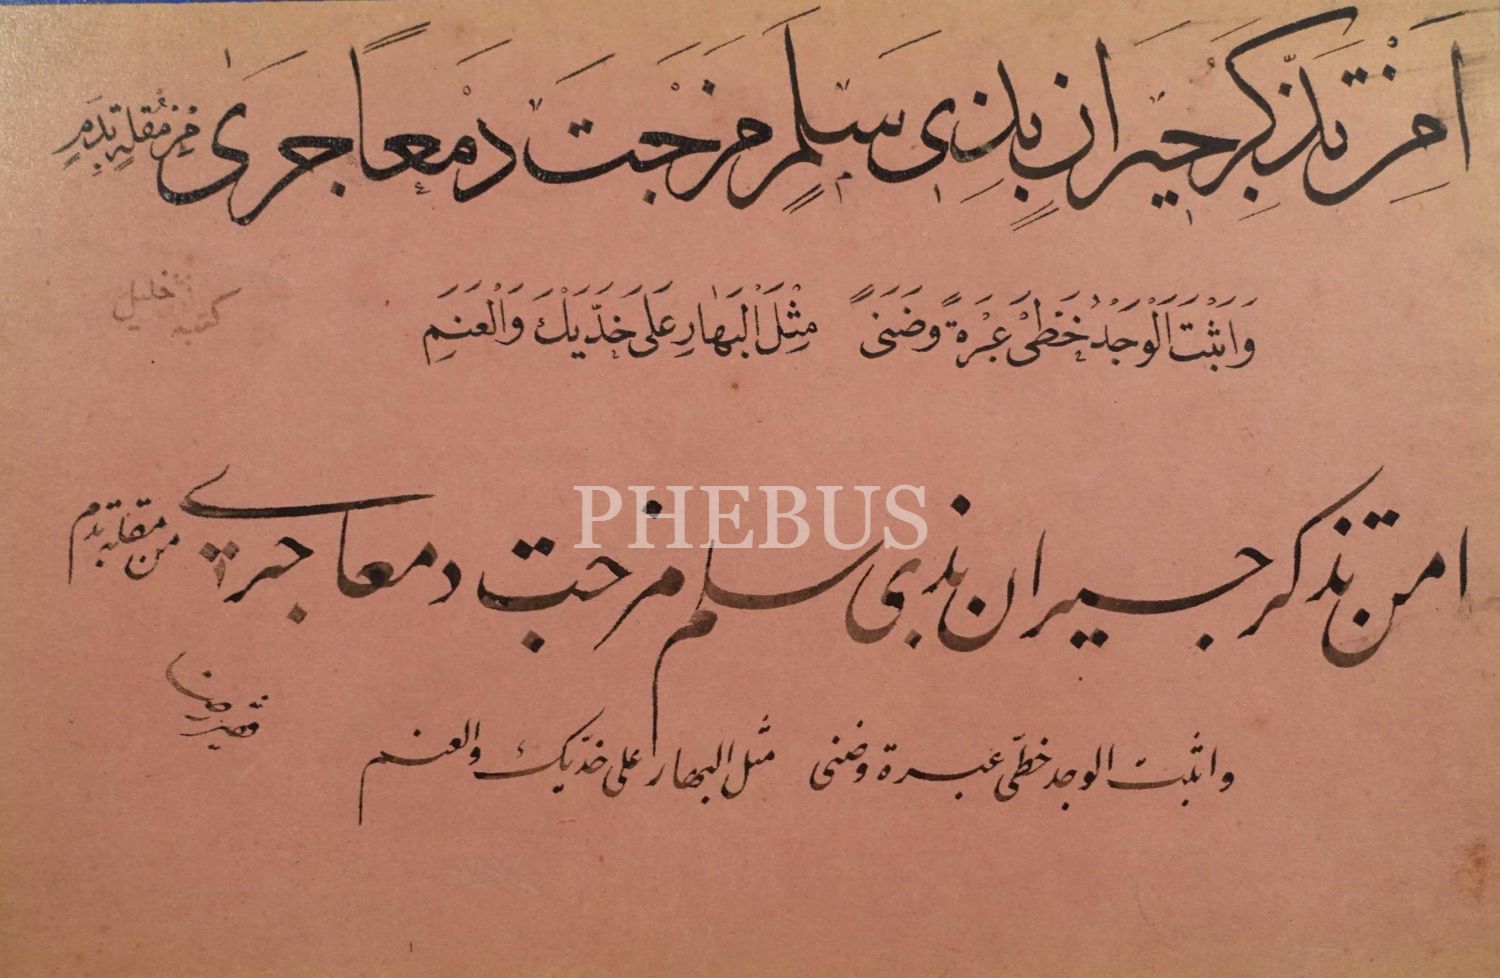 اَمِنْ تَذَكُّرِ جِيرَانٍ بِذِي سَلَمٍ مَزَجْتَ دَمْعًا جَرَىٰ مِنْ مُقْلَةٍ بِدَمٍ
وَاَثْبَتَ الْوَجْدُ خَطَّىْ عَبْرَةٍ وَضَنًى مِثْلَ الْبَهَارِ عَلَى خَدَّيْكَ وَالْعَنَمِ
كتبه خليل
امن تذكر جيران بذی سلم مزجت دمعا جری من مقلة بدم
PHEBUS
واثبت الوجد خطّی عبرة وضنی مثل البهار علی خدّيك والعنم